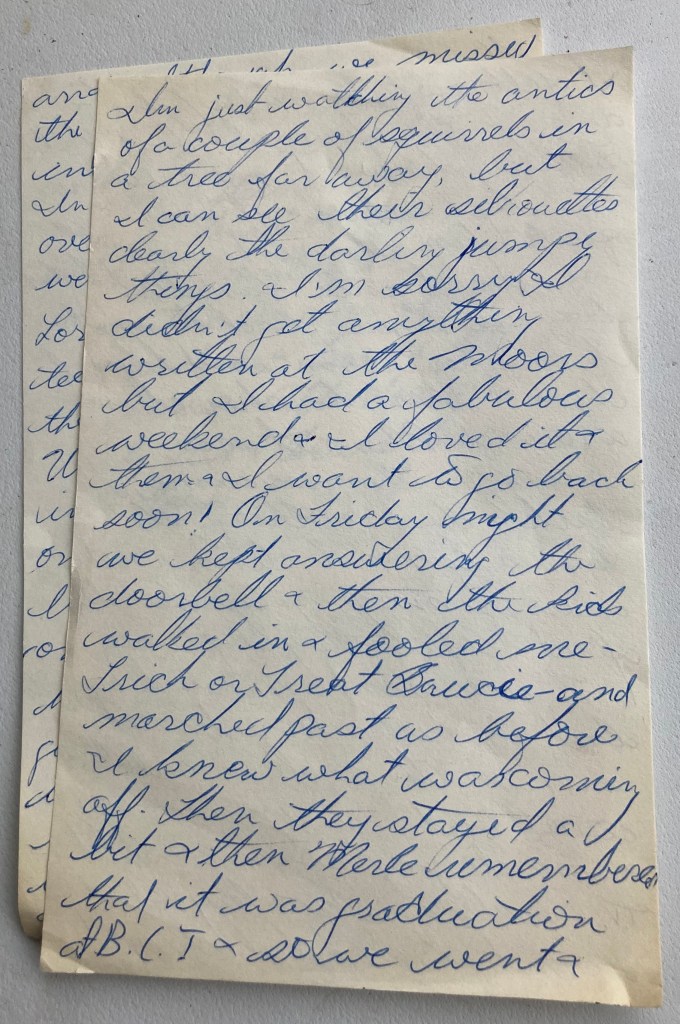 and although we missed
the
in
ove
we
tee
the
in
on
I'm just watching the antics
of a couple of squirrels in
a tree far away, but
I can see their silhouettes
clearly the darling jumpy
things. I'm sorry I
didn't get anything
written at the Moors
but I had a fabulous
weekend & I loved it &
them & I want to go back
soon! On Friday night
we kept answering the
doorbell & then the kids
walked in & fooled me -
Trick or Treat - and
marched past as before
I knew what was coming
off. Then they stayed a
bit & then Merle remembered
that it was graduation
at B.C.I & so we went &